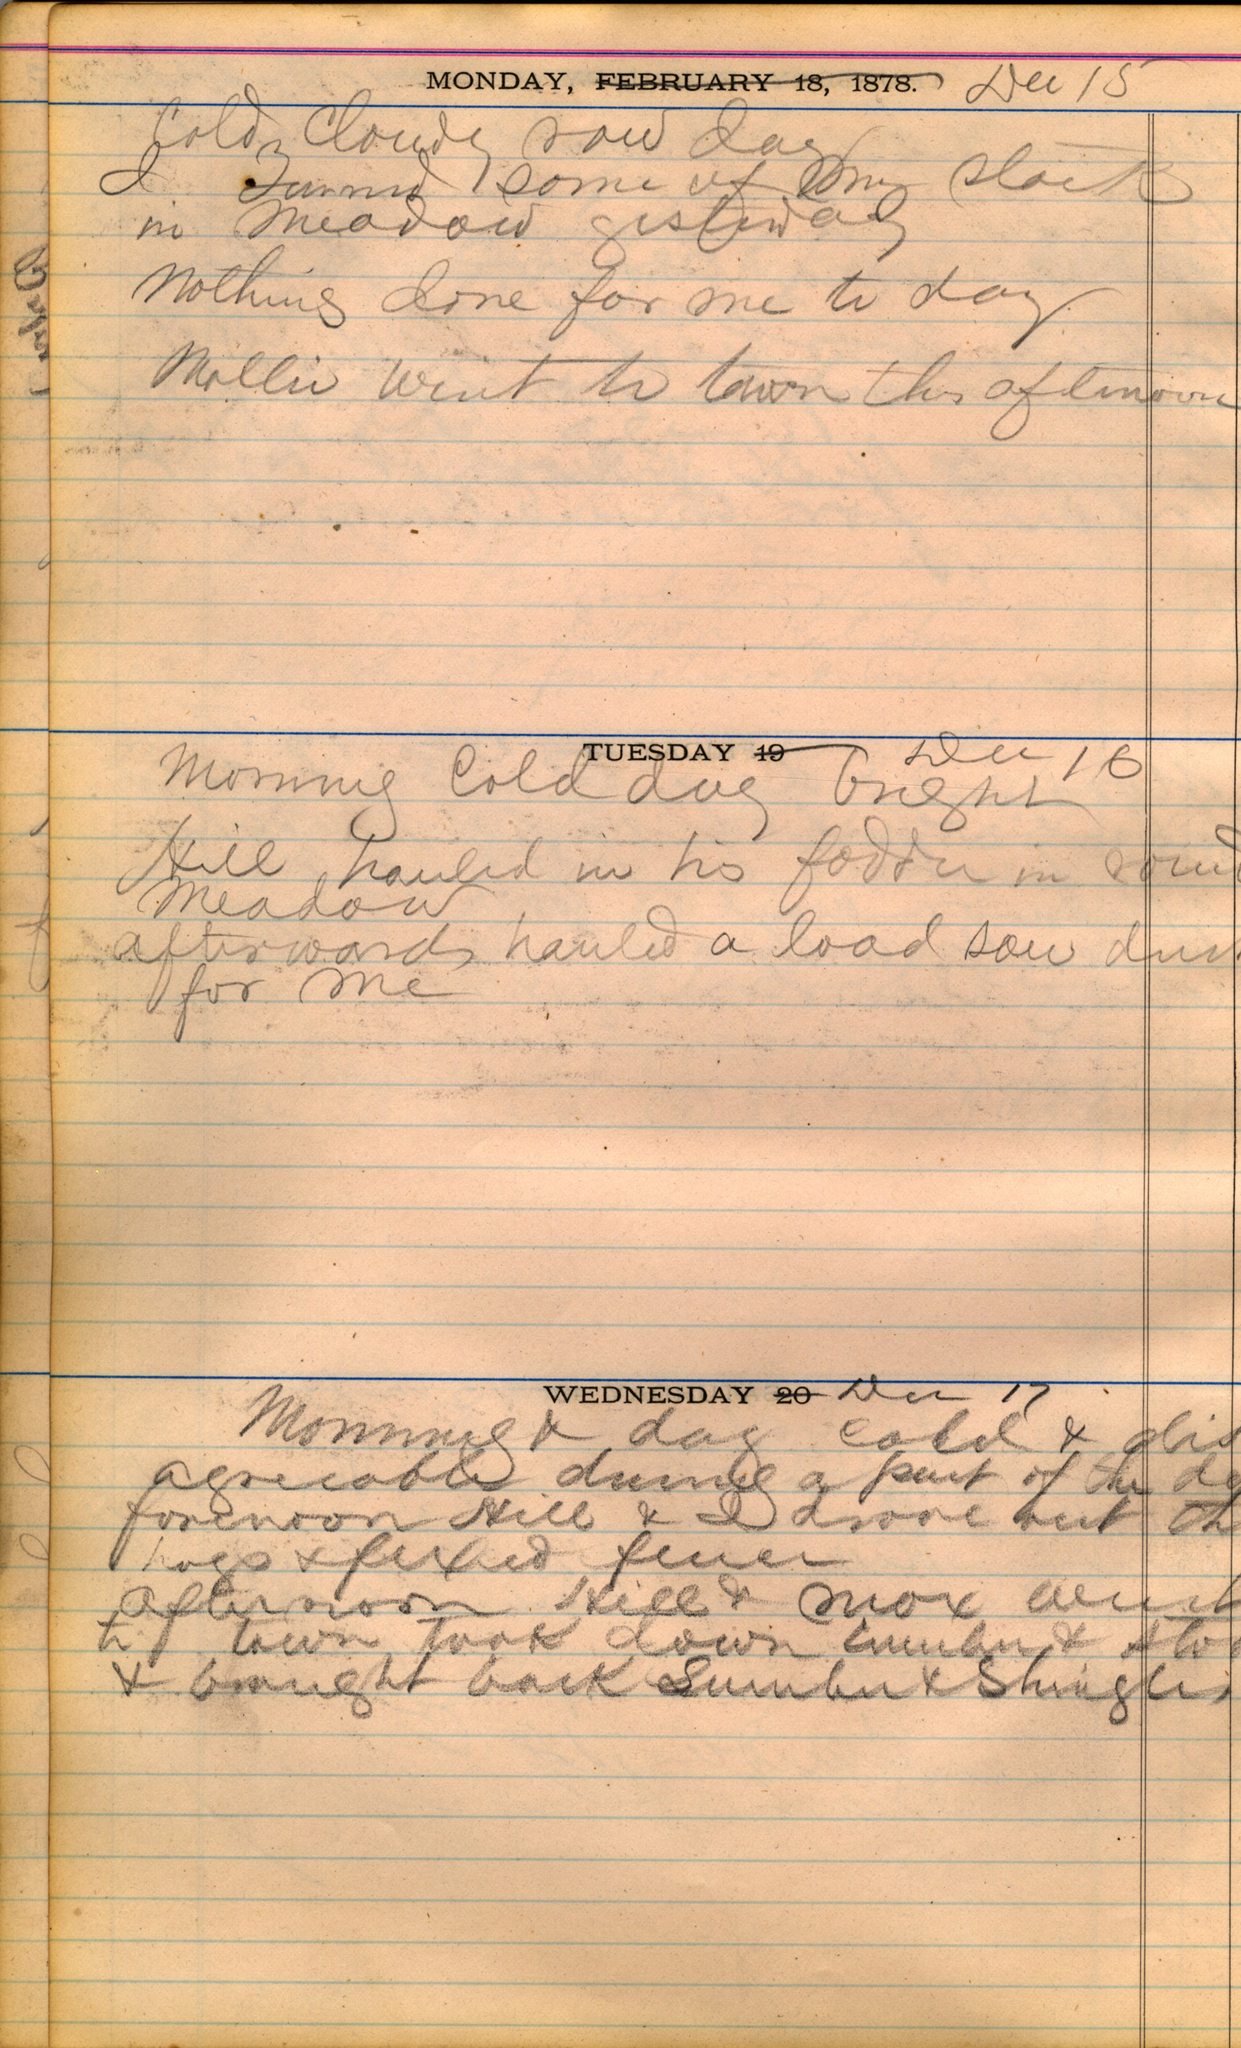 MONDAY, FEBRUARY 18, 1878. Dec 15
Cold Cloudy raw day
I Turned some of my stock
in Meadow yesterday
Nothing done for me to day
Mollie went to town this afternoon
TUESDAY 19 Dec 16
Morning Cold day bright
Hill hauled in his fodder in round
Meadow
afterwards hauled a load saw dust
for me
WEDNESDAY 20 Dec 17
Morning & day cold & dis
agreeable during a part of the da
forenoon Hill & I drove out th
hogs & fixed fence
afternoon Hill & Max went
to town took down lumber &
& brought back Lumber & Shingles